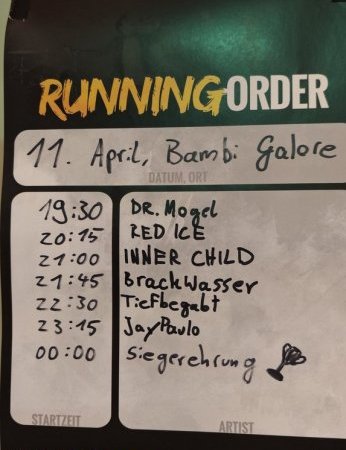 RUNNING ORDER
11. April, Bambi Galore
DATUM, ORT
19:30 DR. Mogel
20:15 RED ICE
21:00 INNER CHILD
21:45 Brackwasser
22:30 Tiefbegabt
23:15 JayPaulo
00:00 Siegerehrung
STARTZEIT ARTIST